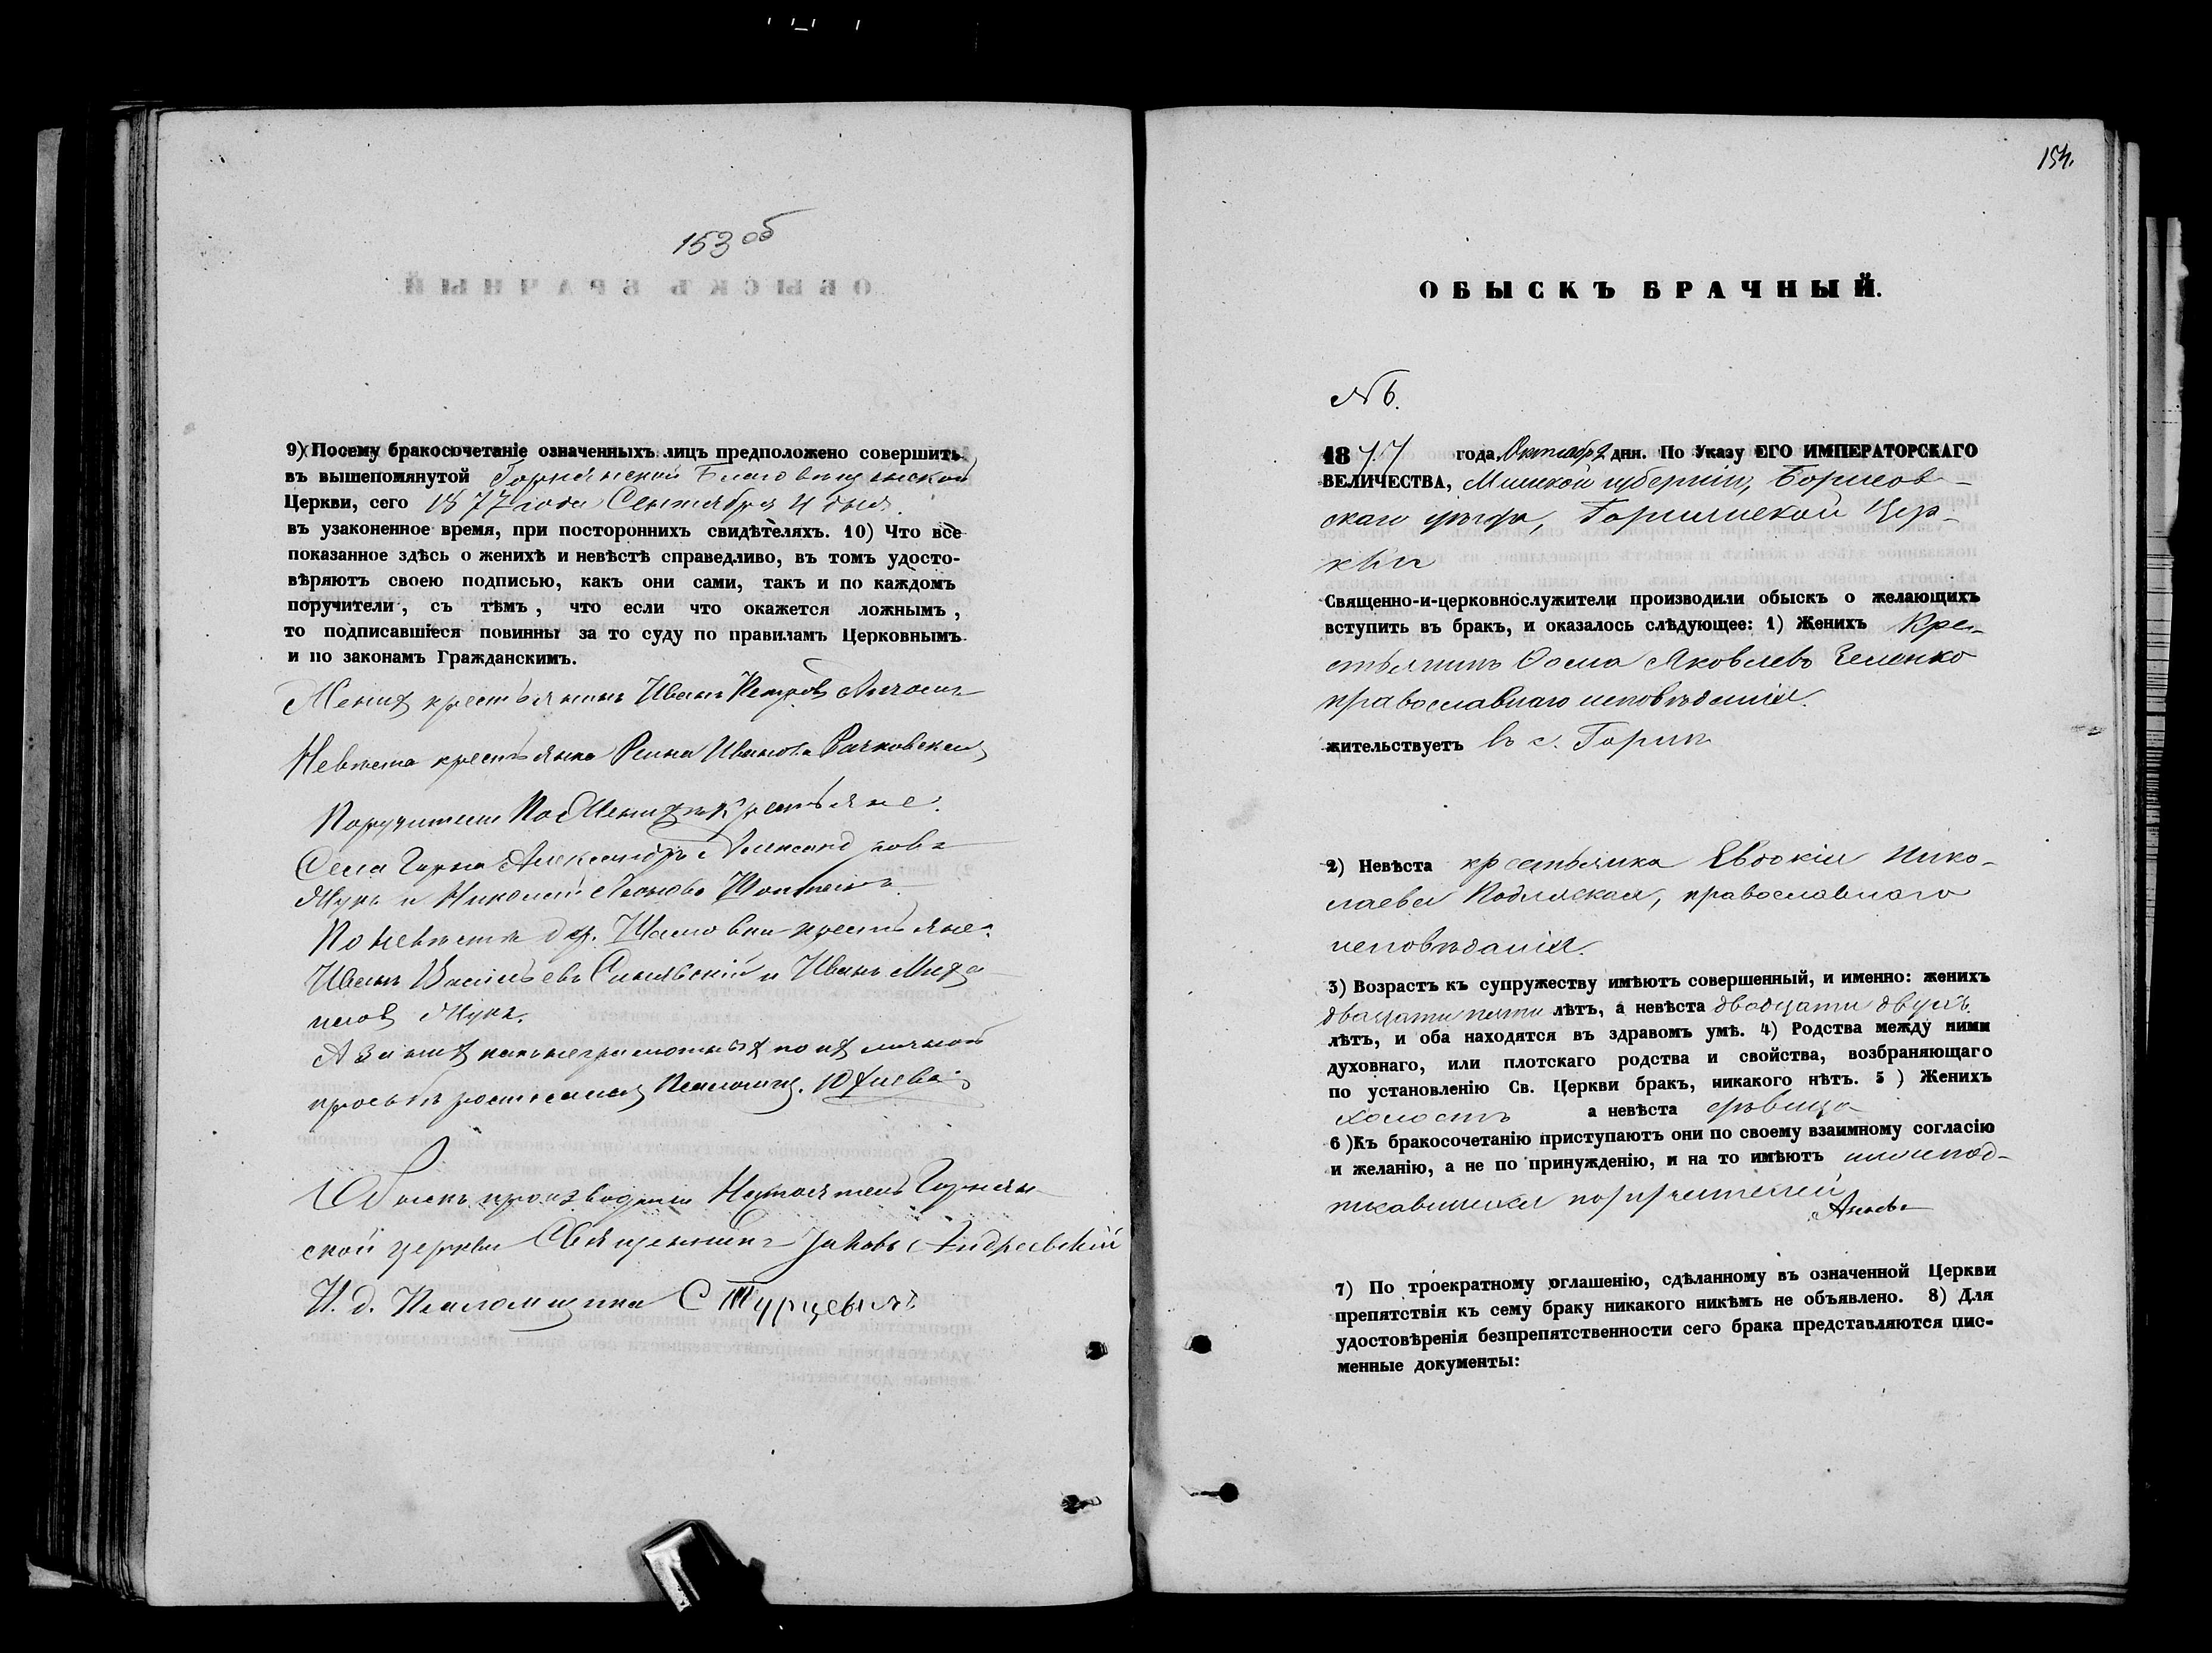 153 об
9) Посему бракосочетаніе означенныхъ лицъ предположено совершить
въ вышепомянутой Горнянской Благовѣщенской
Церкви, сего 1877 года Сентября 4 дня.
въ узаконенное время, при постороннихъ свидѣтеляхъ. 10) Что все
показанное здѣсь о женихѣ и невѣстѣ справедливо, въ томъ удосто-
вѣряютъ своею подписью, какъ они сами, такъ и по каждомъ
поручители, съ тѣмъ, что если что окажется ложнымъ,
то подписавшіеся повинны за то суду по правиламъ Церковнымъ
и по законамъ Гражданскимъ.
Жених крестьянинъ Иванъ Петровъ
Невѣста крестьянка Иванова Рачковская
Поручители По Женихѣ Крестьяне
Села Горна Александръ Александровъ
Жукъ и Николай
По невѣстѣ дер. крестьяне
Иванъ Васильевъ Синявскій и Иванъ Миха
иловъ Жукъ.
А за них неграмотных по их личной
просьбѣ росписался Псаломщ.
Обыскъ производили Настоятель Горнян
ской церкви Священникъ Іаковъ Андреевскій
И. д. Псаломщика С Турцевичъ
154.
ОБЫСКЪ БРАЧНЫЙ.
№ 6.
1877 года, Октября 2 дня. По Указу ЕГО ИМПЕРАТОРСКАГО
ВЕЛИЧЕСТВА, Минской губерніи, Борисов-
скаго уѣзда, Горнянской Цер-
кви
Священно-и-церковнослужители производили обыскъ о желающихъ
вступить въ бракъ, и оказалось слѣдующее: 1) Женихъ Кре-
стьянинъ Ѳома Яковлевъ
православнаго исповѣданія.
жительствуетъ въ с. Горнѣ
2) Невѣста крестьянка Евдокія Нико-
лаева православнаго
исповѣданія.
3) Возрастъ къ супружеству имѣютъ совершенный, и именно: женихъ
двадцати пяти лѣтъ, а невѣста двадцати двухъ
лѣтъ, и оба находятся въ здравомъ умѣ. 4) Родства между ними
духовнаго, или плотскаго родства и свойства, возбраняющаго
по установленію Св. Церкви бракъ, никакого нѣтъ. 5) Женихъ
холостъ а невѣста дѣвица
6) Къ бракосочетанію приступаютъ они по своему взаимному согласію
и желанію, а не по принужденію, и на то имѣютъ
поручителей
7) По троекратному оглашенію, сдѣланному въ означенной Церкви
препятствія къ сему браку никакого никѣмъ не объявлено. 8) Для
удостовѣренія безпрепятственности сего брака представляются пис-
менные документы: